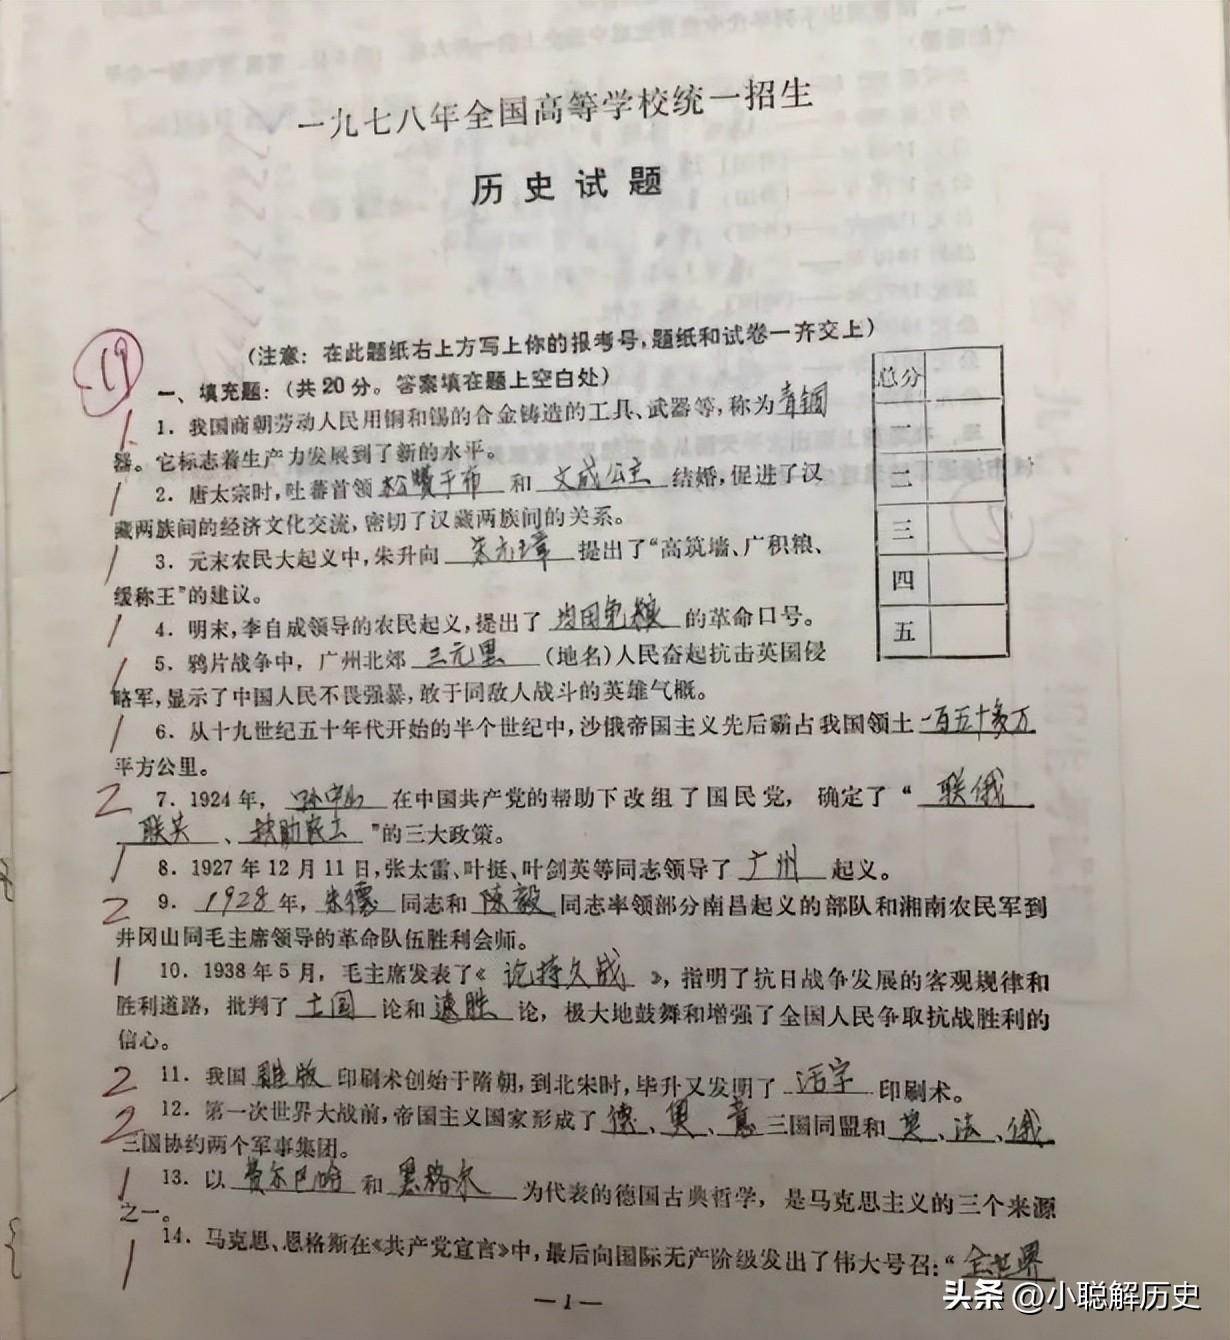 一九七八年全国高等学校统一招生
历史试题
19
(注意：在此题纸右上方写上你的报考号，题纸和试卷一齐交上)
一、填充题：(共20分。答案填在题上空白处)
总分
一
二
三
四
五
1 1．我国商朝劳动人民用铜和锡的合金铸造的工具、武器等，称为青铜
器。它标志着生产力发展到了新的水平。
1 2．唐太宗时，吐蕃首领松赞干布和文成公主结婚，促进了汉
藏两族间的经济文化交流，密切了汉藏两族间的关系。
1 3．元末农民大起义中，朱升向朱元璋提出了“高筑墙、广积粮、
缓称王”的建议。
1 4．明末，李自成领导的农民起义，提出了均田免粮的革命口号。
1 5．鸦片战争中，广州北郊三元里(地名)人民奋起抗击英国侵
略军，显示了中国人民不畏强暴，敢于同敌人战斗的英雄气概。
1 6．从十九世纪五十年代开始的半个世纪中，沙俄帝国主义先后霸占我国领土一百五十多万
平方公里。
2 7．1924年，孙中山在中国共产党的帮助下改组了国民党，确定了“联俄
联共、扶助农工”的三大政策。
1 8．1927年12月11日，张太雷、叶挺、叶剑英等同志领导了广州起义。
2 9．1928年，朱德同志和陈毅同志率领部分南昌起义的部队和湘南农民军到
井冈山同毛主席领导的革命队伍胜利会师。
1 10．1938年5月，毛主席发表了《论持久战》，指明了抗日战争发展的客观规律和
胜利道路，批判了亡国论和速胜论，极大地鼓舞和增强了全国人民争取抗战胜利的
信心。
2 11．我国雕版印刷术创始于隋朝，到北宋时，毕升又发明了活字印刷术。
2 12．第一次世界大战前，帝国主义国家形成了德、奥、意三国同盟和英、法、俄
三国协约两个军事集团。
1 13．以费尔巴哈和黑格尔为代表的德国古典哲学，是马克思主义的三个来源
之一。
1 14．马克思、恩格斯在《共产党宣言》中，最后向国际无产阶级发出了伟大号召：“全世界
—1—
头条 @小聪解历史